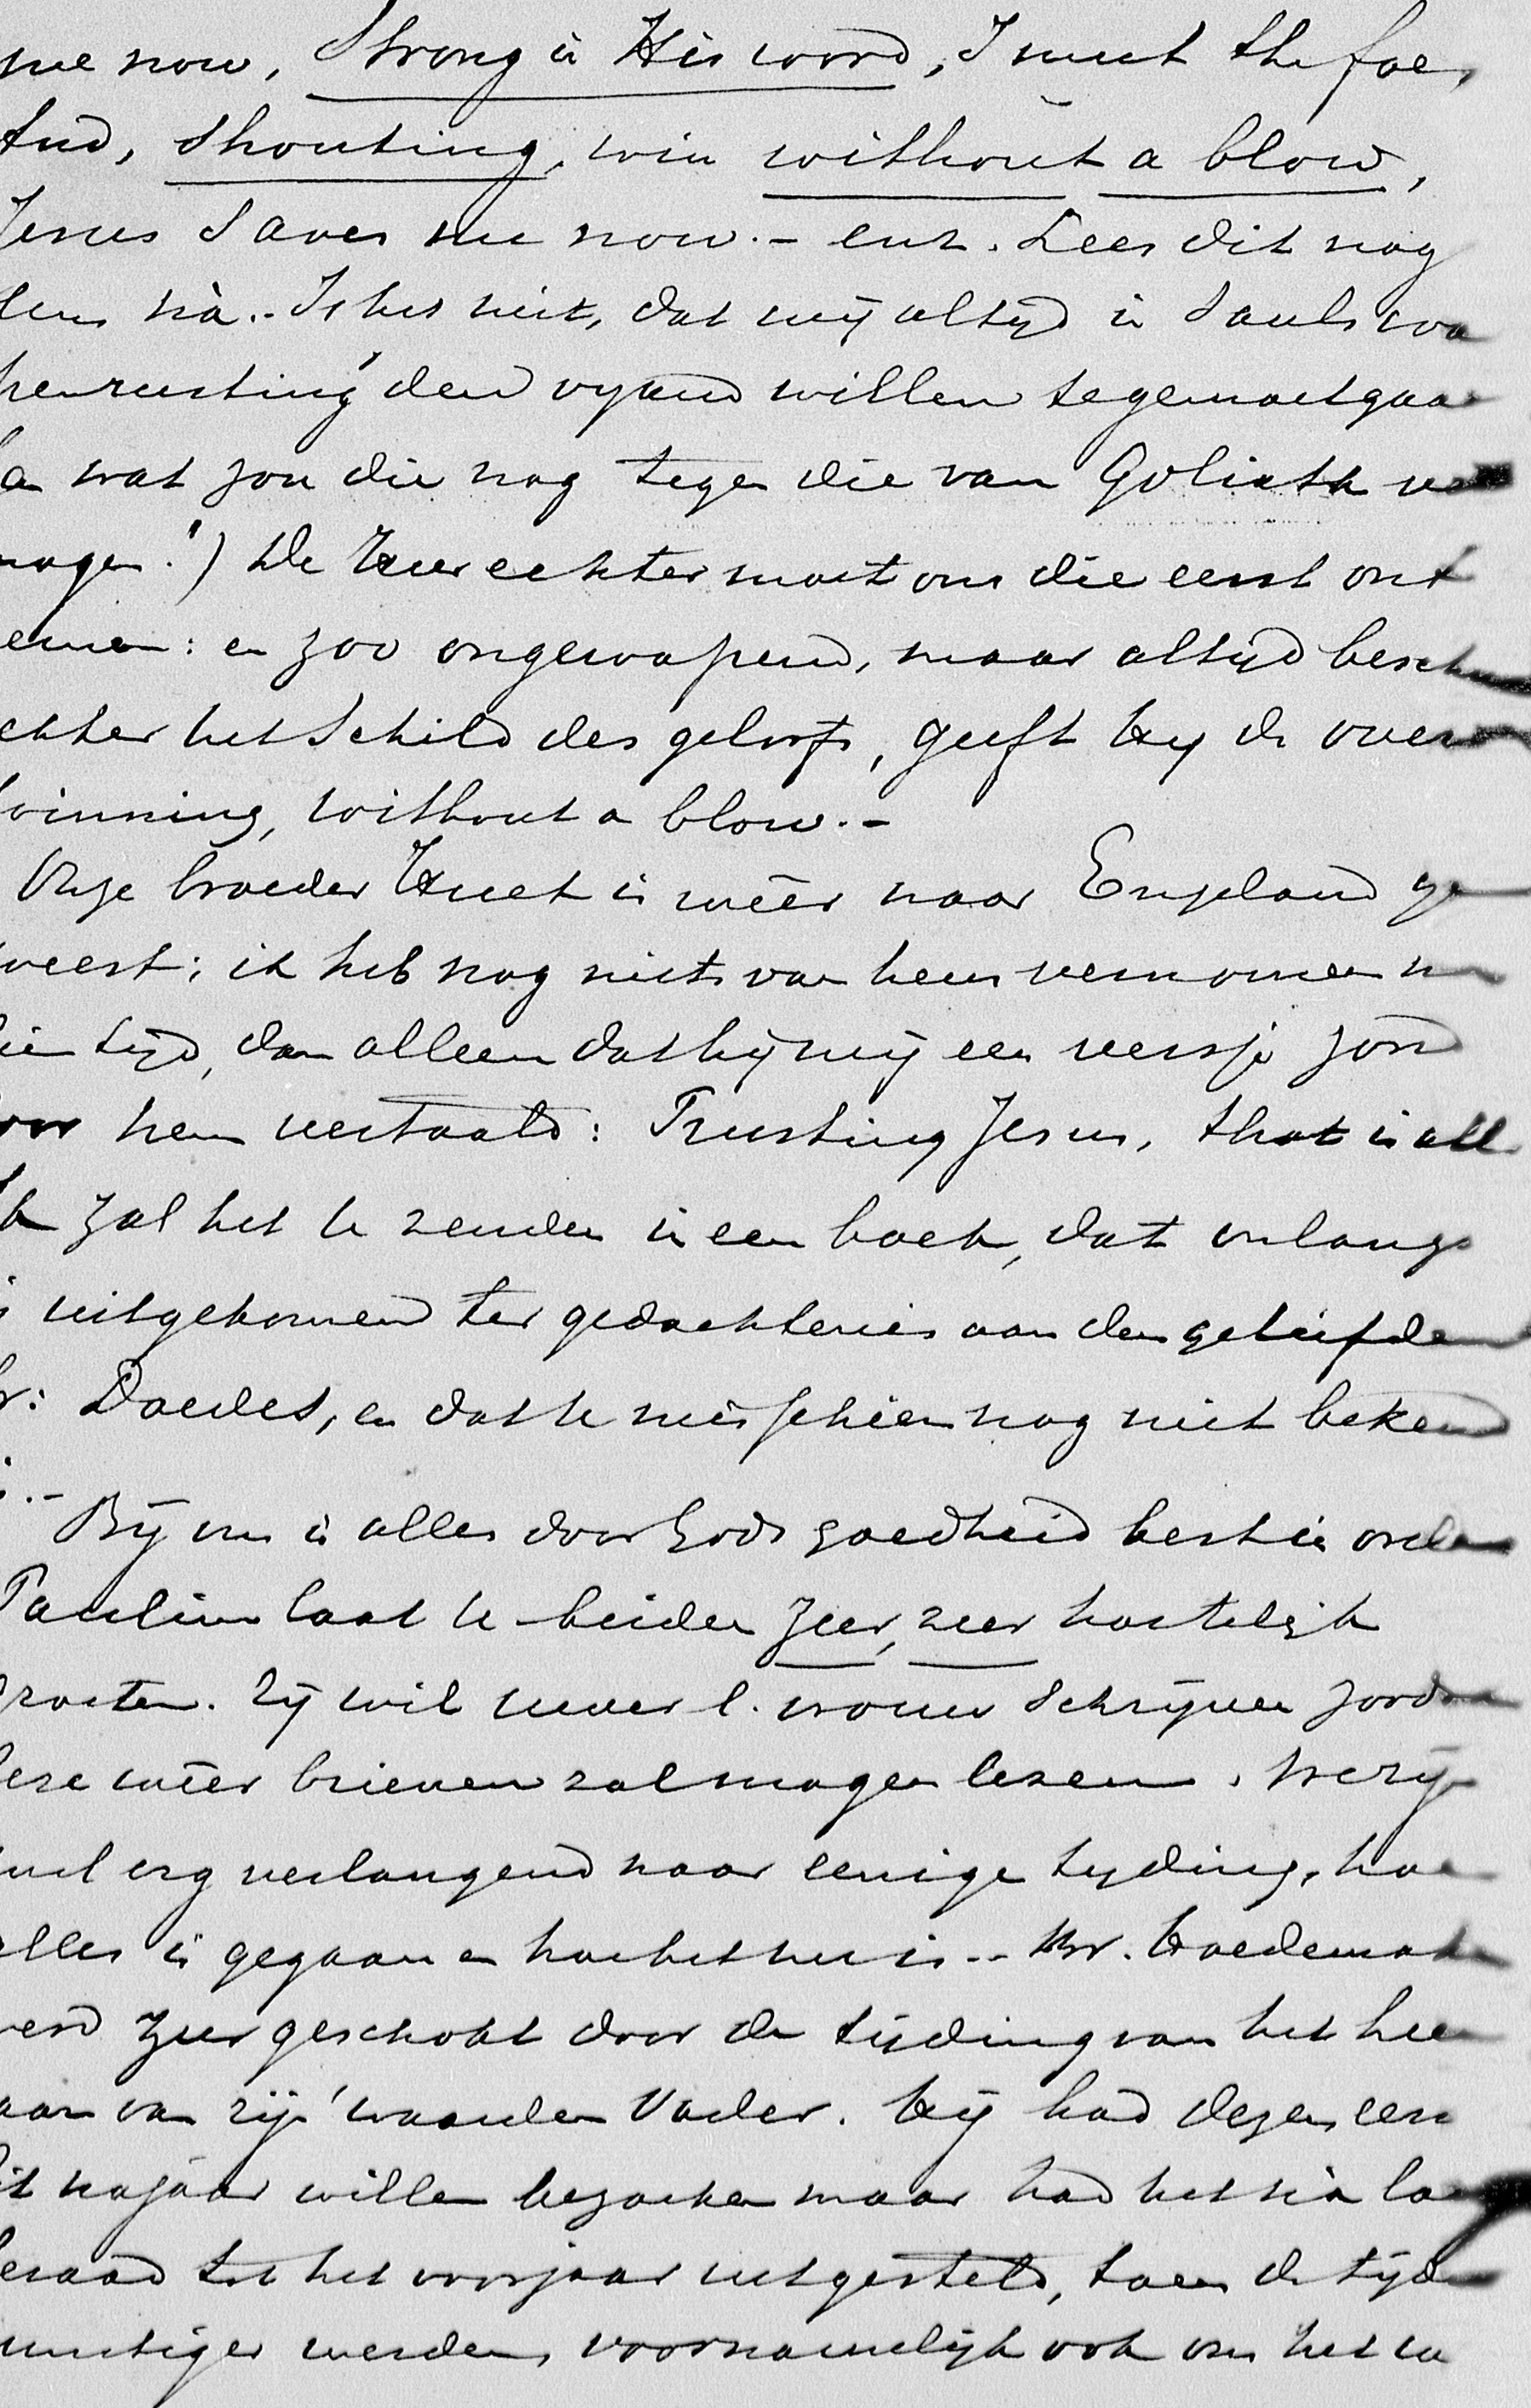 me now, Strong in His word, I meet the foe,
And, shouting, win without a blow,
Jesus Saves me now. – enz. Lees dit nog
eens nà. – Is het niet, dat wij altijd in Sauls wa
penrusting den vyand willen tegemoetgaa
en wat zou die nog tegen die van Goliath ver
mogen!) De Heer echter moet ons die eerst ont
nemen: en zoo ongewapend, maar altijd besch
achter het Schild des geloofs, geeft Hy de over
winning, without a blow. –
Onze broeder Huet is wéér naar Engeland ge
weest; ik heb nog niets van hem vernomen na
dien tijd, dan alleen dat hij mij een versje zond
door hem vertaald: Trusting Jesus, that is all
Ik zal het U zenden in een boek, dat onlangs
is uitgekomen ter gedachtenis aan den geliefden
br: Doedes, en dat U misschien nog niet bekend
is. –
Bij ons is alles door Gods goedheid best in orde
Pauline laat U beiden zeer, zeer hartelijk
groeten. Zij wil uwer l. vrouw Schrijven zoodra
deze wéér brieven zal mogen lezen. We zijn
wel erg verlangend naar eenige tyding, hoe
alles is gegaan en hoe het nu is. – Br. Hoedemaker
werd zeer geschokt door de tijding van het heen
gaan van zijn waarden Vader. Hij had dezen eerst
dit najaar willen bezoeken maar had het na lang
beraad tot het voorjaar uitgesteld, toen de tijden
gunstiger werden, voornamelijk ook om het w